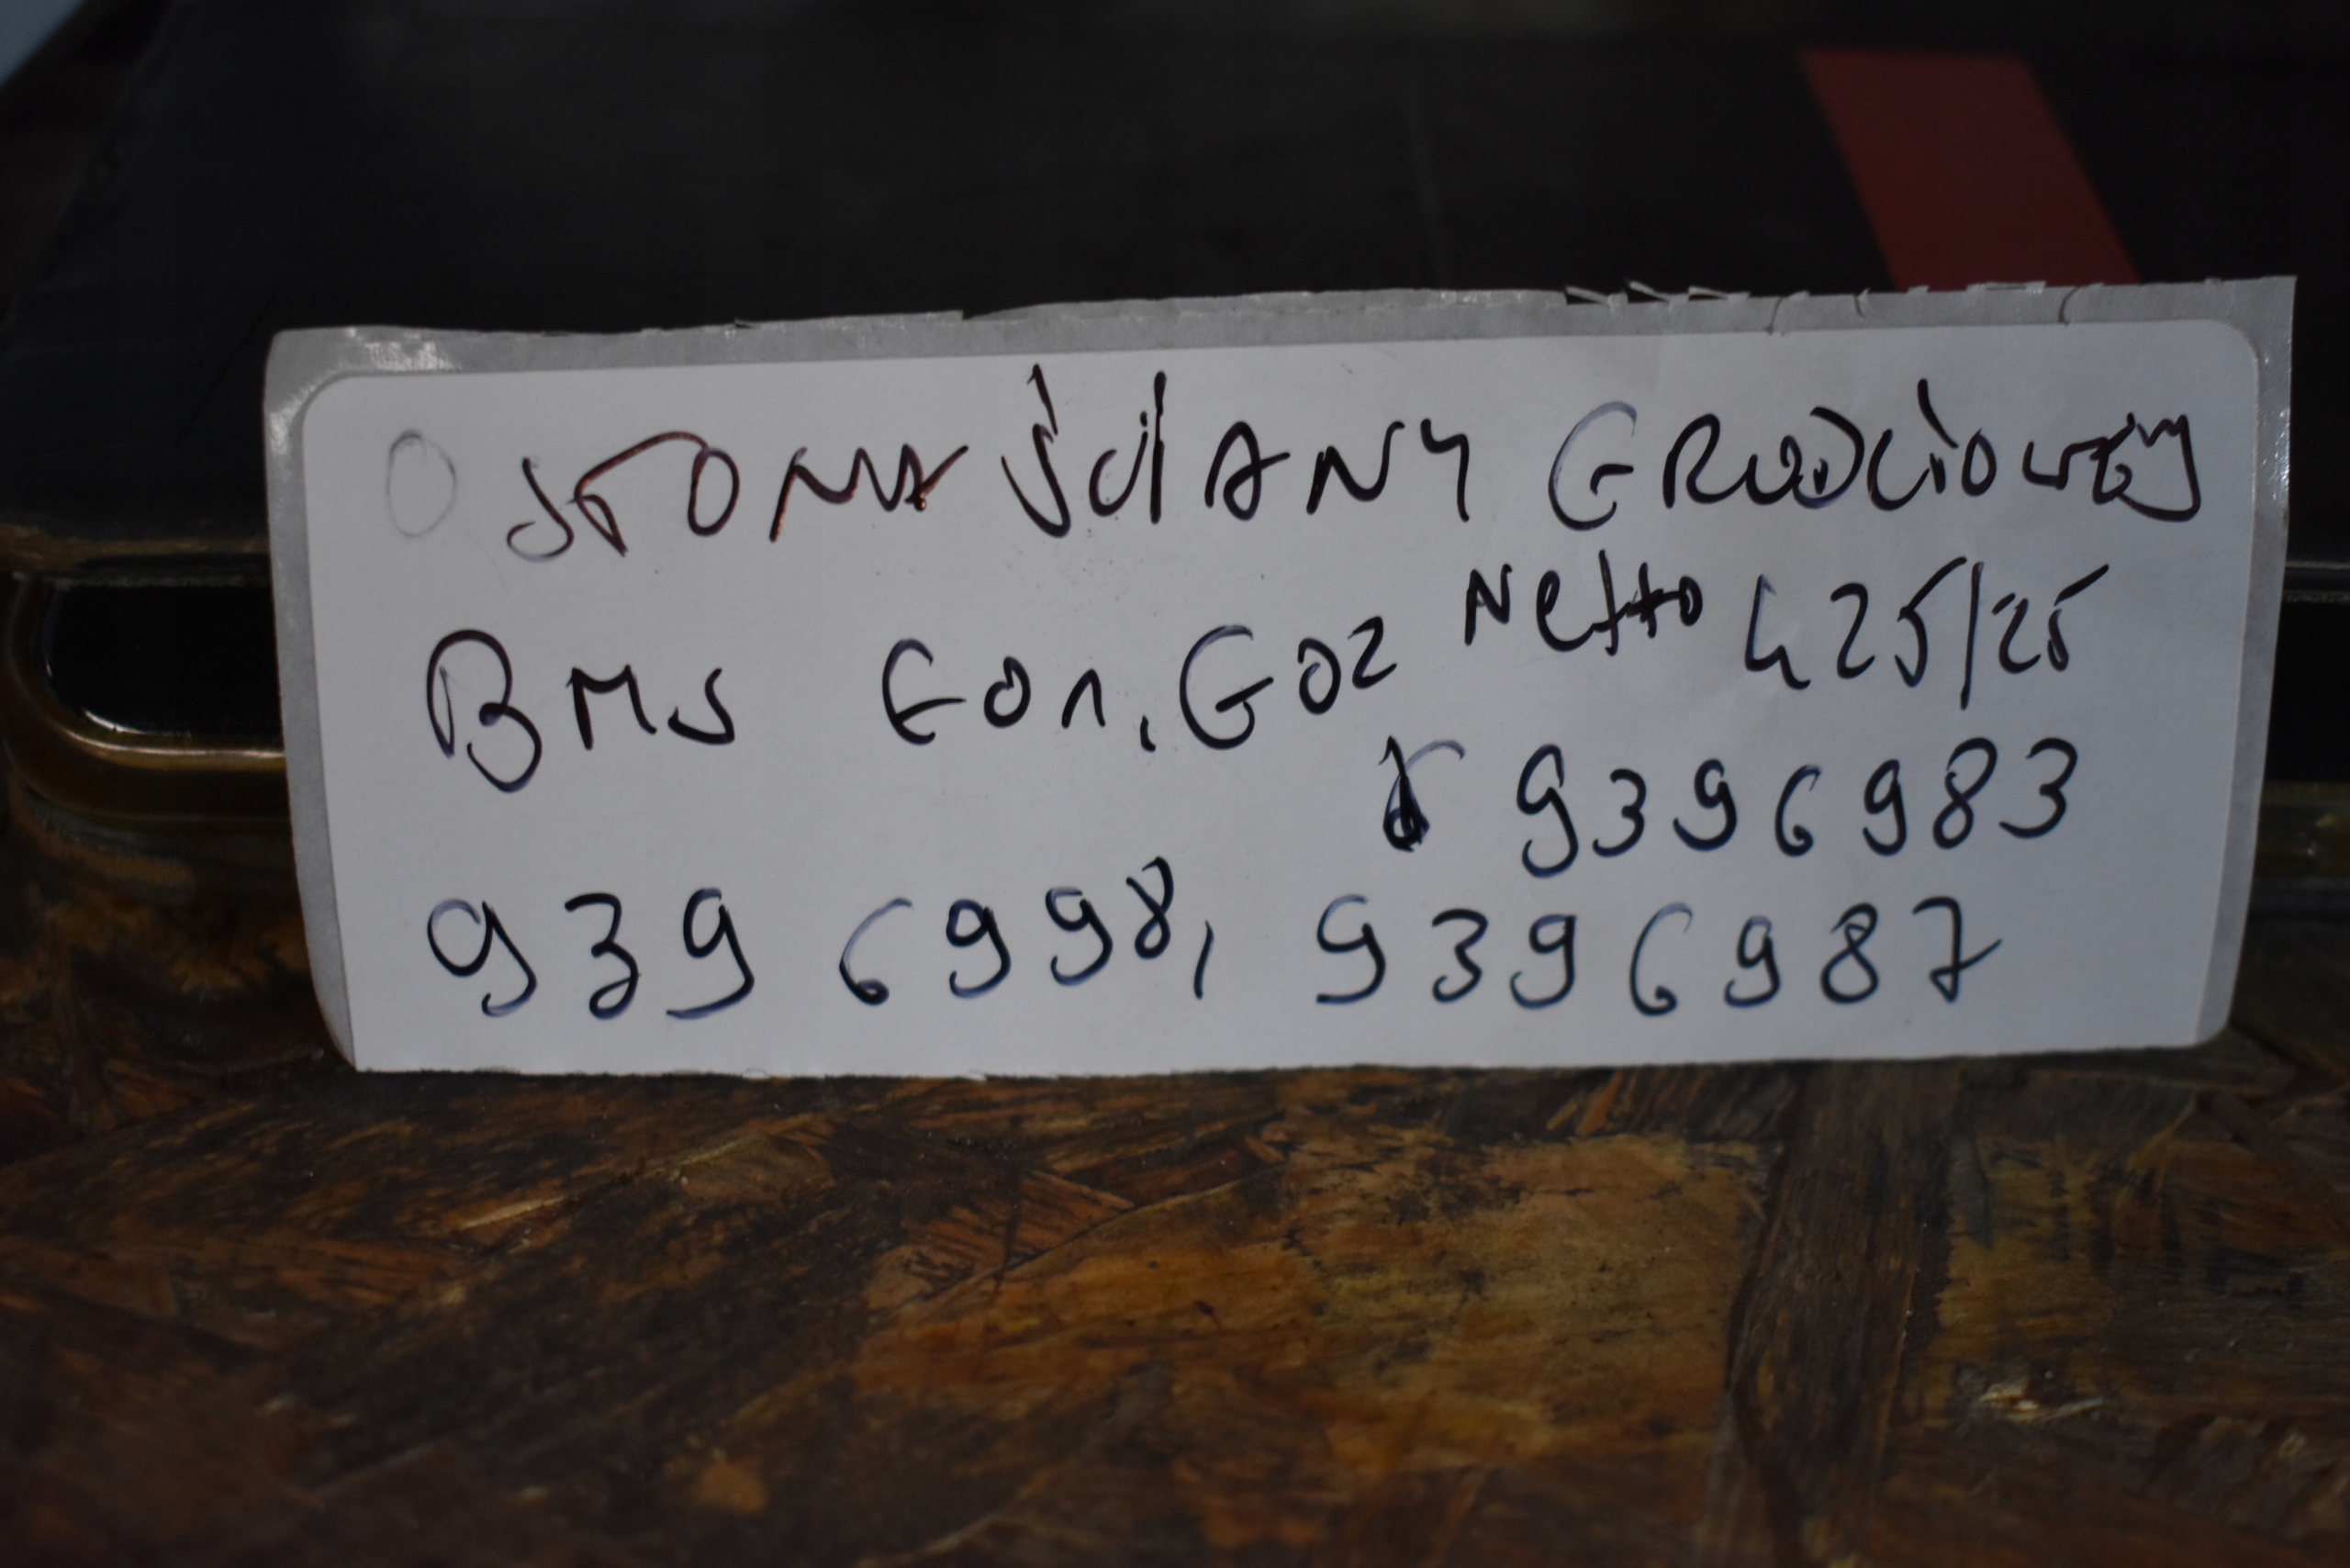 OSŁONA ŚCIANY GRODZIOWEJ
BMS G01, G02 Netto 425/25
9396983
9396998, 9396987